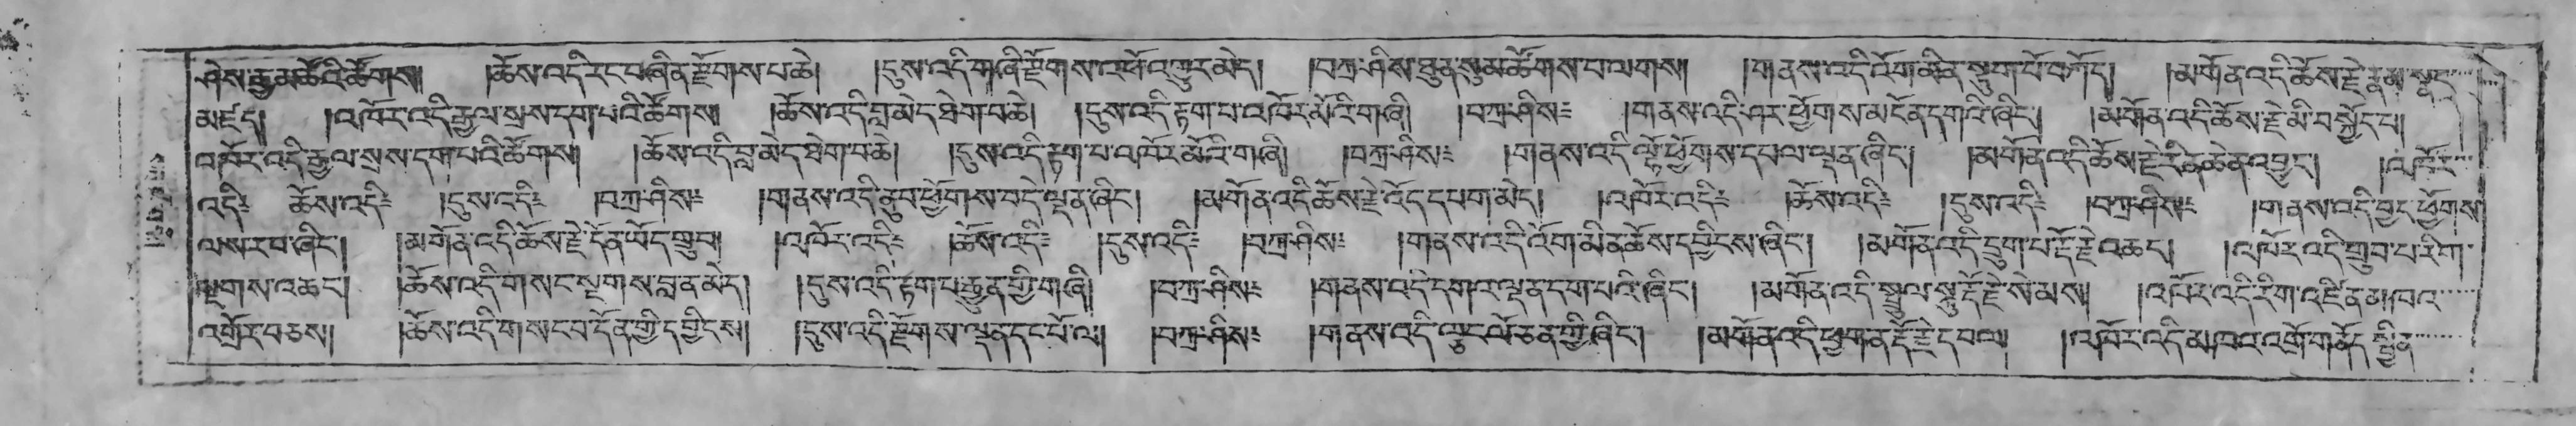 ཤེས་རྒྱ་མཚོའི་ཚོགས། །ཆོས་འདི་རང་བཞིན་རྫོགས་པ་ཆེ། །དུས་འདི་གཞི་རྫོགས་འཕོ་འགྱུར་མེད། །བཀྲ་ཤིས་ཕུན་སུམ་ཚོགས་པ་ལགས། །གནས་འདི་འོག་མིན་སྟུག་པོ་བཀོད། །མགོན་འདི་ཆོས་རྗེ་རྣམ་སྣང་
མཛད། །འཁོར་འདི་རྒྱལ་སྲས་དག་པའི་ཚོགས། །ཆོས་འདི་བླ་མེད་ཐེག་པ་ཆེ། །དུས་འདི་རྟག་པ་འཁོར་མོའི་གཞི། །བཀྲ་ཤིས༔ །གནས་འདི་ཤར་ཕྱོགས་མངོན་དགའི་ཞིང་། །མགོན་འདི་ཆོས་རྗེ་མི་བསྐྱོད་པ།
འཁོར་འདི་རྒྱལ་སྲས་དག་པའི་ཚོགས། །ཆོས་འདི་བླ་མེད་ཐེག་པ་ཆེ། །དུས་འདི་རྟག་པ་འཁོར་མོའི་གཞི། །བཀྲ་ཤིས༔ །གནས་འདི་ལྷོ་ཕྱོགས་དཔལ་ལྡན་ཞིང་། །མགོན་འདི་ཆོས་རྗེ་རིན་ཆེན་འབྱུང་། །འཁོར་
འདི༔ ཆོས་འདི༔ །དུས་འདི༔ །བཀྲ་ཤིས༔ །གནས་འདི་ནུབ་ཕྱོགས་བདེ་ལྡན་ཞིང་། །མགོན་འདི་ཆོས་རྗེ་འོད་དཔག་མེད། །འཁོར་འདི༔ །ཆོས་འདི༔ །དུས་འདི༔ །བཀྲ་ཤིས༔ །གནས་འདི་བྱང་ཕྱོགས་
ལས་རབ་ཞིང་། །མགོན་འདི་ཆོས་རྗེ་དོན་ཡོད་གྲུབ། །འཁོར་འདི༔ །ཆོས་འདི༔ །དུས་འདི༔ །བཀྲ་ཤིས༔ །གནས་འདི་འོག་མིན་ཆོས་དབྱིངས་ཞིང་། །མགོན་འདི་དྲུག་པ་རྡོ་རྗེ་འཆང་། །འཁོར་འདི་གྲུབ་པ་རིག་
སྔགས་འཆང་། །ཆོས་འདི་གསང་སྔགས་བླ་ན་མེད། །དུས་འདི་རྟག་པ་རྒྱུན་གྱི་གཞི། །བཀྲ་ཤིས༔ །གནས་འདི་དགའ་ལྡན་དག་པའི་ཞིང་། །མགོན་འདི་སྤྲུལ་སྐུ་རྡོ་རྗེ་སེམས། །འཁོར་འདི་རིག་འཛིན་མཁའ་
འགྲོར་བཅས། །ཆོས་འདི་གསང་བ་དོན་གྱི་དབྱིངས། །དུས་འདི་རྫོགས་ལྡན་དང་པོ་ལ། །བཀྲ་ཤིས༔ །གནས་འདི་ལྕང་ལོ་ཅན་གྱི་ཞིང་། །མགོན་འདི་ཕྱག་ན་རྡོ་རྗེ་དཔལ། །འཁོར་འདི་མཁའ་འགྲོ་གནོད་སྦྱིན་